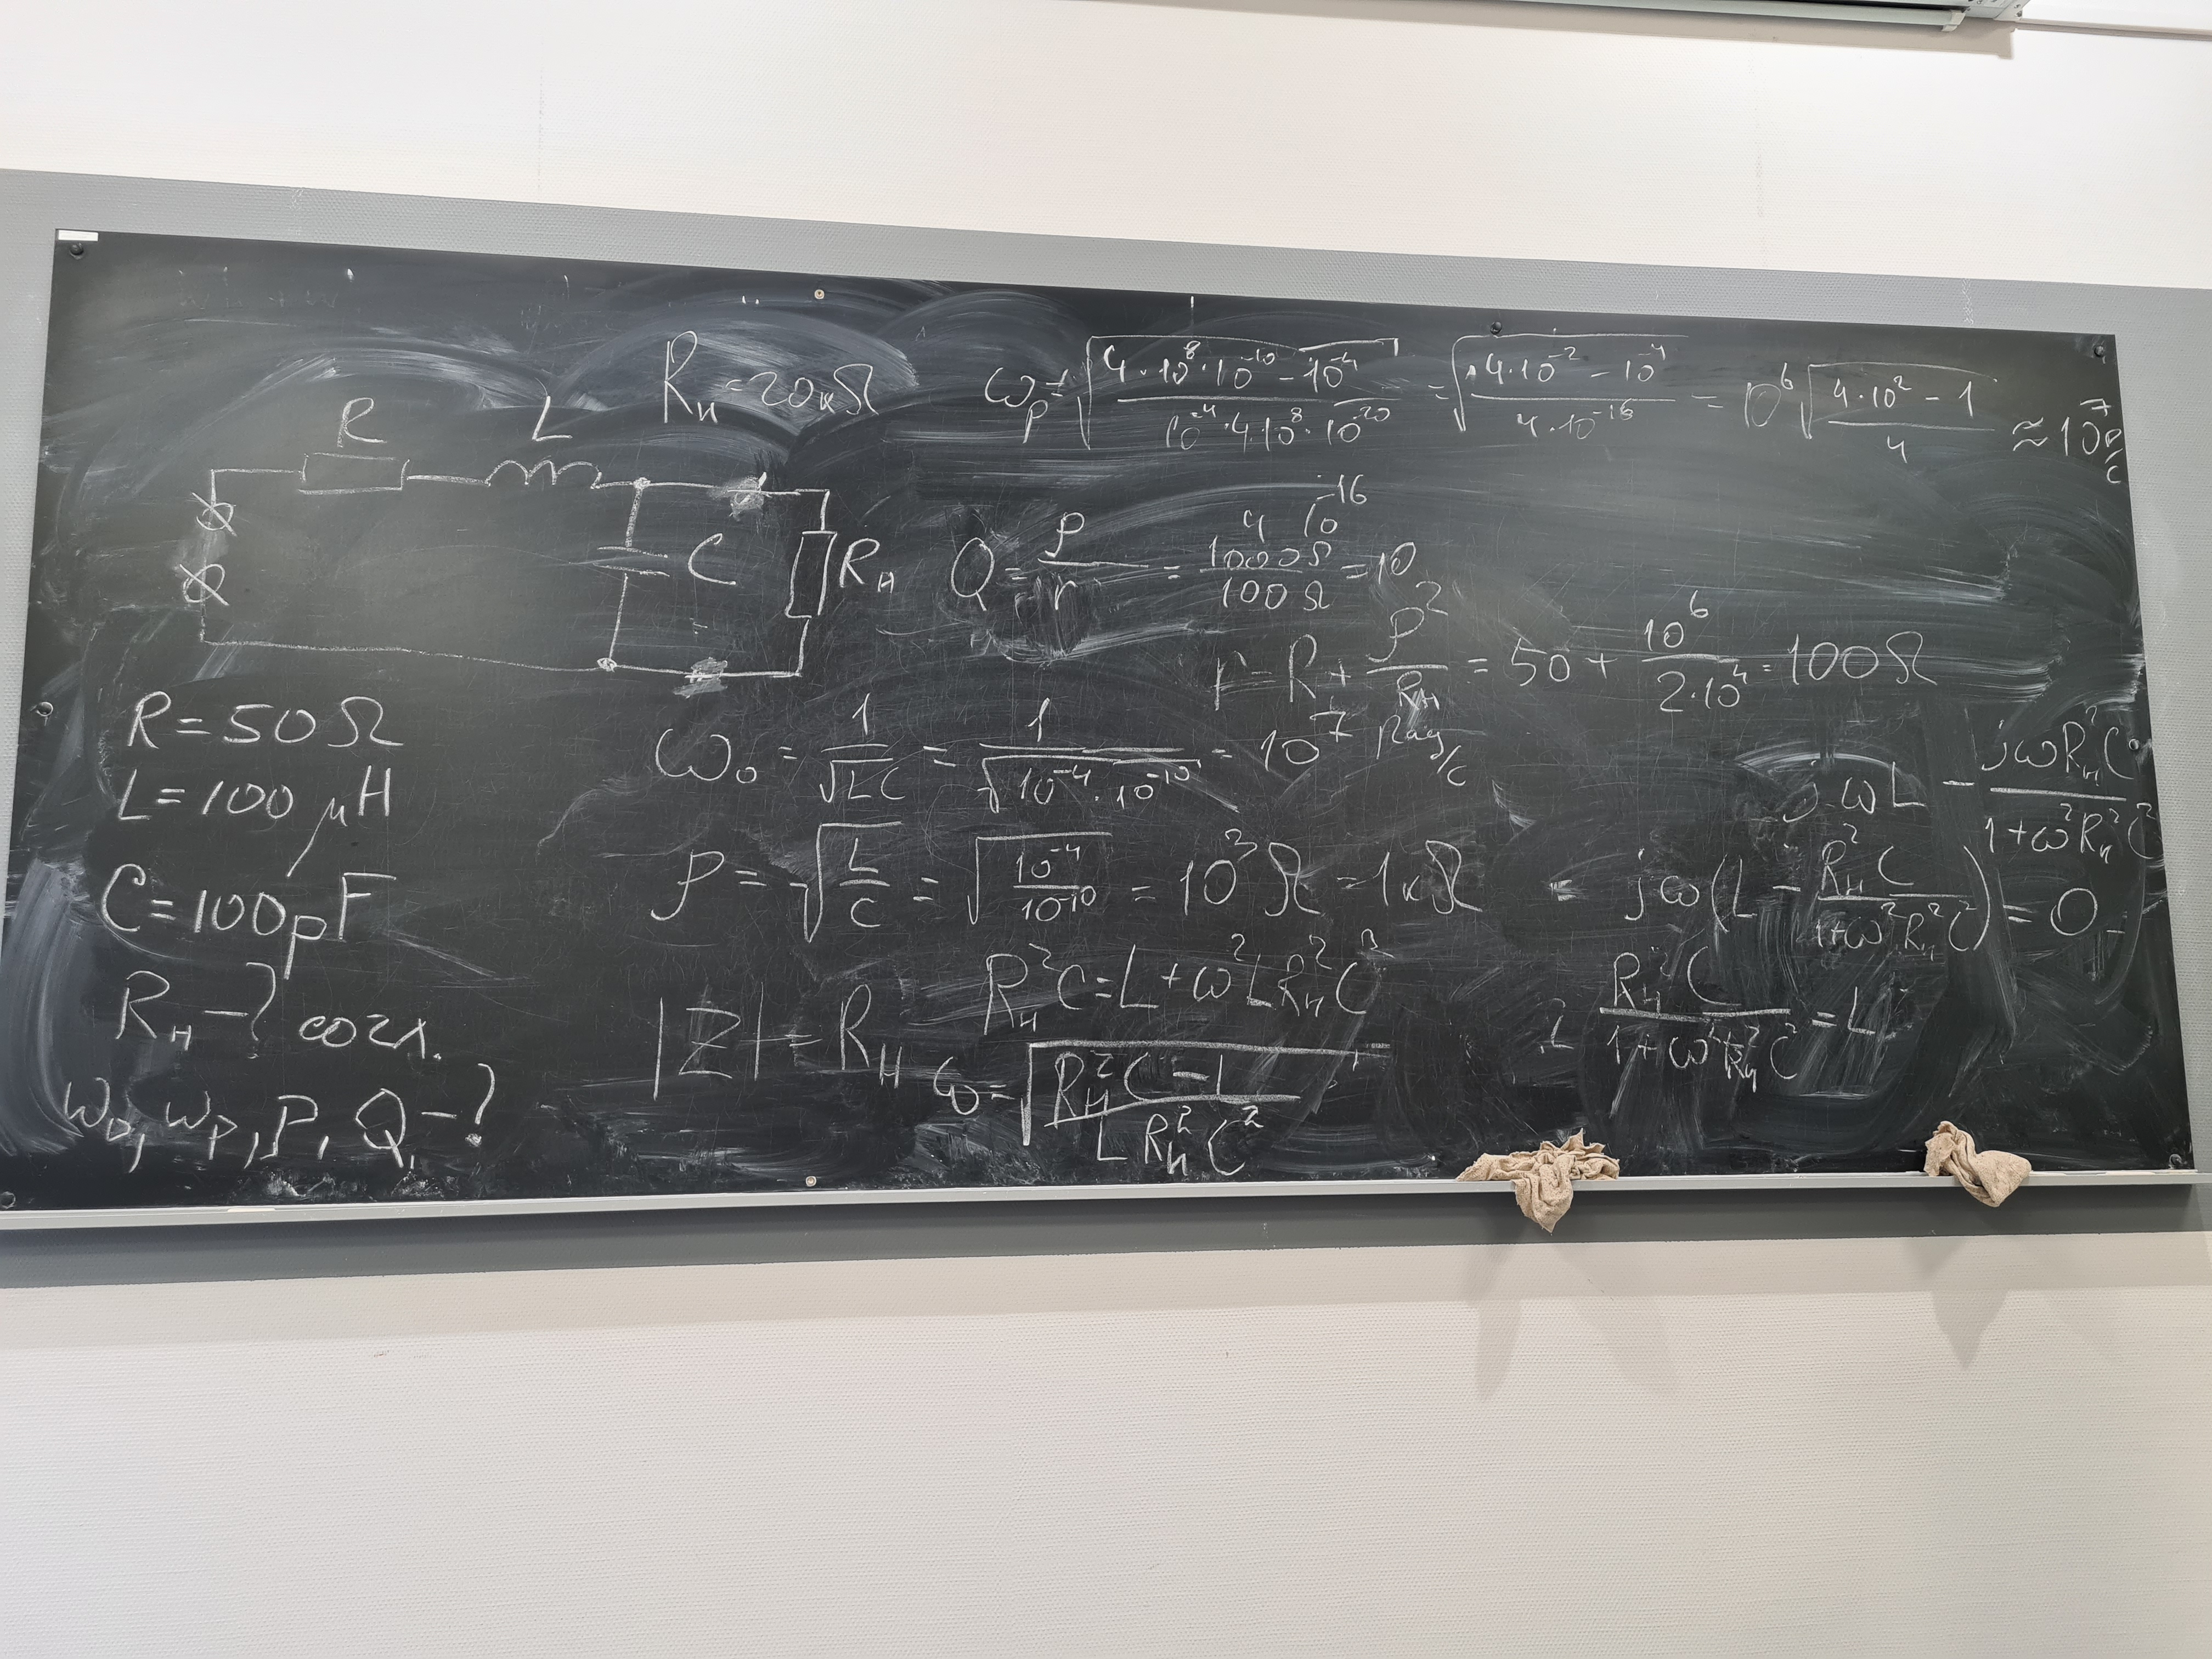 R
L
C
Rн
R = 50 Ω
L = 100 μH
C = 100 pF
Rн - ? согл.
ω₀, ωp, ρ, Q, - ?
Rн = 20 кΩ
ωp = √((4·10⁸·10⁻¹⁰ - 10⁻⁴)/(10⁻⁴·4·10⁸·10⁻²⁰)) = √((4·10⁻² - 10⁻⁴)/(4·10⁻¹⁶)) = 10⁶ √((4·10² - 1)/4) ≈ 10⁷ р/с
4 10⁻¹⁶
Q = ρ/r = 1000 Ω/100 Ω = 10
r = R + ρ²/Rн = 50 + 10⁶/(2·10⁴) = 100 Ω
ω₀ = 1/√(LC) = 1/√(10⁻⁴·10⁻¹⁰) = 10⁷ Рад/с
ρ = √(L/C) = √(10⁻⁴/10⁻¹⁰) = 10³ Ω = 1 кΩ
|Z| = Rн
jωL - jωRн²C/(1+ω²Rн²C²)
= jω(L - Rн²C/(1+ω²Rн²C²)) = 0
Rн²C/(1+ω²Rн²C²) = L
Rн²C = L + ω²LRн²C²
ω = √((Rн²C - L)/(LRн²C²))